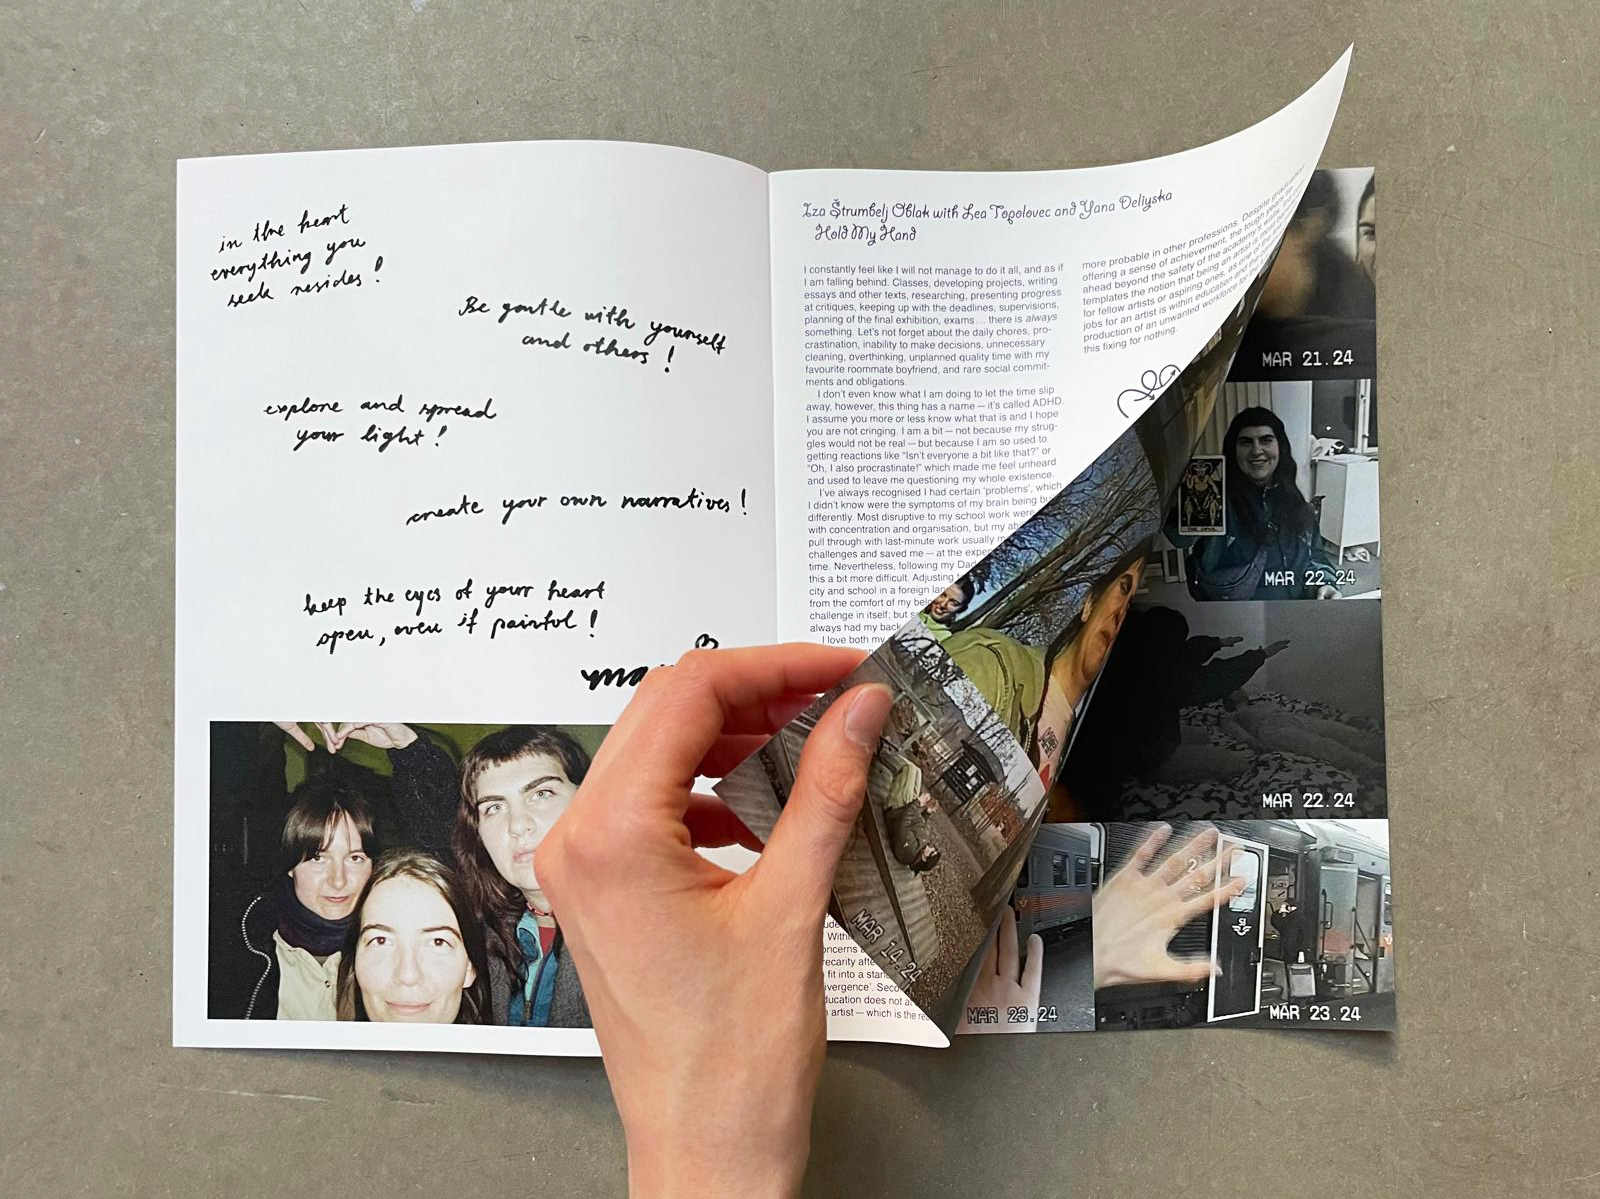 in the heart
everything you
seek resides!
Be gentle with yourself
and others!
explore and spread
your light!
create your own narratives!
keep the eyes of your heart
open, even if painful!
Iza Štrumbelj Oblak with Lea Topolovec and Yana Deliyska
Hold My Hand
I constantly feel like I will not manage to do it all, and as if
I am falling behind. Classes, developing projects, writing
essays and other texts, researching, presenting progress
at critiques, keeping up with the deadlines, supervisions,
planning of the final exhibition, exams... there is always
something. Let's not forget about the daily chores, pro-
crastination, inability to make decisions, unnecessary
cleaning, overthinking, unplanned quality time with my
favourite roommate boyfriend, and rare social commit-
ments and obligations.
I don't even know what I am doing to let the time slip
away, however, this thing has a name — it's called ADHD.
I assume you more or less know what that is and I hope
you are not cringing. I am a bit — not because my strug-
gles would not be real — but because I am so used to
getting reactions like “Isn't everyone a bit like that?” or
“Oh, I also procrastinate!” which made me feel unheard
and used to leave me questioning my whole existence.
I've always recognised I had certain ‘problems’, which
I didn't know were the symptoms of my brain being
differently. Most disruptive to my school work were
with concentration and organisation, but my
pull through with last-minute work usually
challenges and saved me — at the
time. Nevertheless, following my Dad
this a bit more difficult. Adjusting
city and school in a foreign
from the comfort of my
challenge in itself; but
always had my back
I love both my
Within
fit into a
education does not
artist — which is the
more probable in other professions. Despite
offering a sense of achievement, the tough
ahead beyond the safety of the academy's walls.
templates the notion that being an artist is
for fellow artists or aspiring ones, as one of
jobs for an artist is within education and the
production of an unwanted workforce
this fixing for nothing.
MAR 14.24
MAR 21.24
THE DEVIL
MAR 22.24
MAR 22.24
MAR 23.24
SJ
MAR 23.24